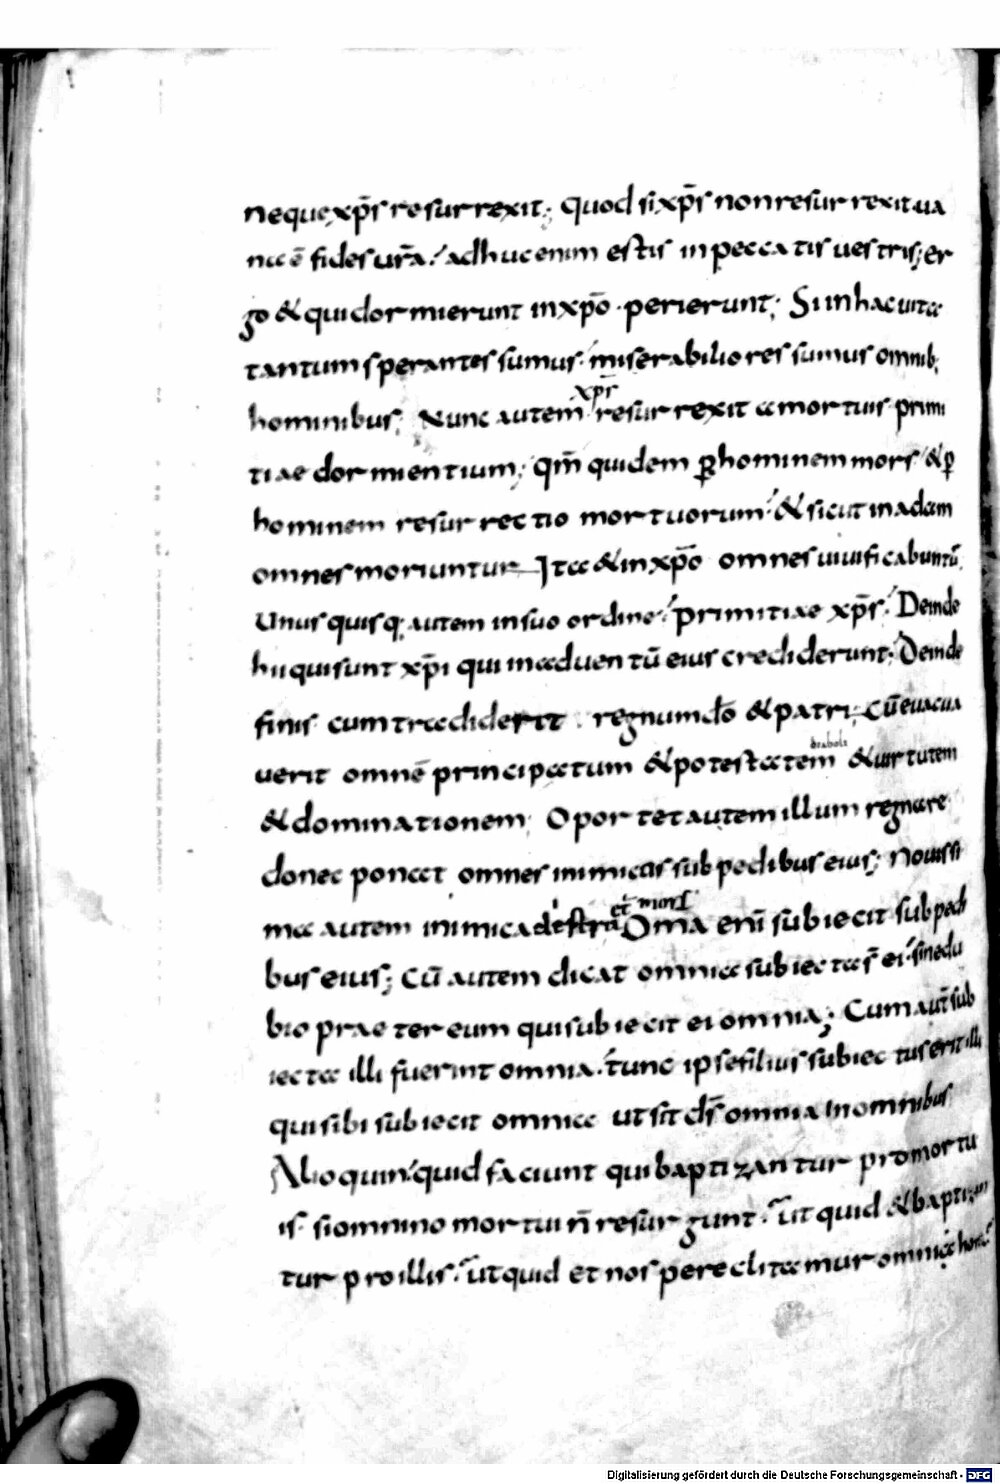 neque xp̄s resurrexit; quod si xp̄s non resurrexit ua
na ē fides ur̄a; adhuc enim estis in peccatis uestris; er
go & qui dormierunt in xp̄o · perierunt; Si in hac uita
tantum sperantes sumus; miserabiliores sumus omnib;
hominibus; Nunc autem xp̄s resurrexit a mortuis primi
tiae dormientium; qm̄ quidem ꝑ hominem mors · & ꝑ
hominem resurrectio mortuorum; & sicut in adam
omnes moriuntur Ita & in xp̄o omnes uiuificabuntur̄
Unusquisq; autem in suo ordine; primitiae xp̄s; Deinde
hii qui sunt xp̄i qui in aduentū eius crediderunt; Deinde
finis cum tradiderit regnum dō & patri; Cū euacua
uerit omnē principatum & potestatem diaboli & uirtutem
& dominationem; Oportet autem illum regnare
donec ponat omnes inimicus sub pedibus eius; Nouissi
ma autem inimica destra et mors Oma enī subiecit sub pedi
bus eius; Cū autem dicat omnia subiecta s̄ ei; sine du
bio praeter eum qui subiecit ei omnia; Cum aut̄ sub
iecta illi fuerint omnia; tunc ipse filius subiectus erit illi
qui sibi subiecit omnia ut sit ds̄ omnia in omnibus
Alioquin; quid faciunt qui baptizantur pro mortu
is· si omnino mortui n̄ resurgunt; ut quid & baptizan
tur pro illis; ut quid et nos pereclitamur omnia hora